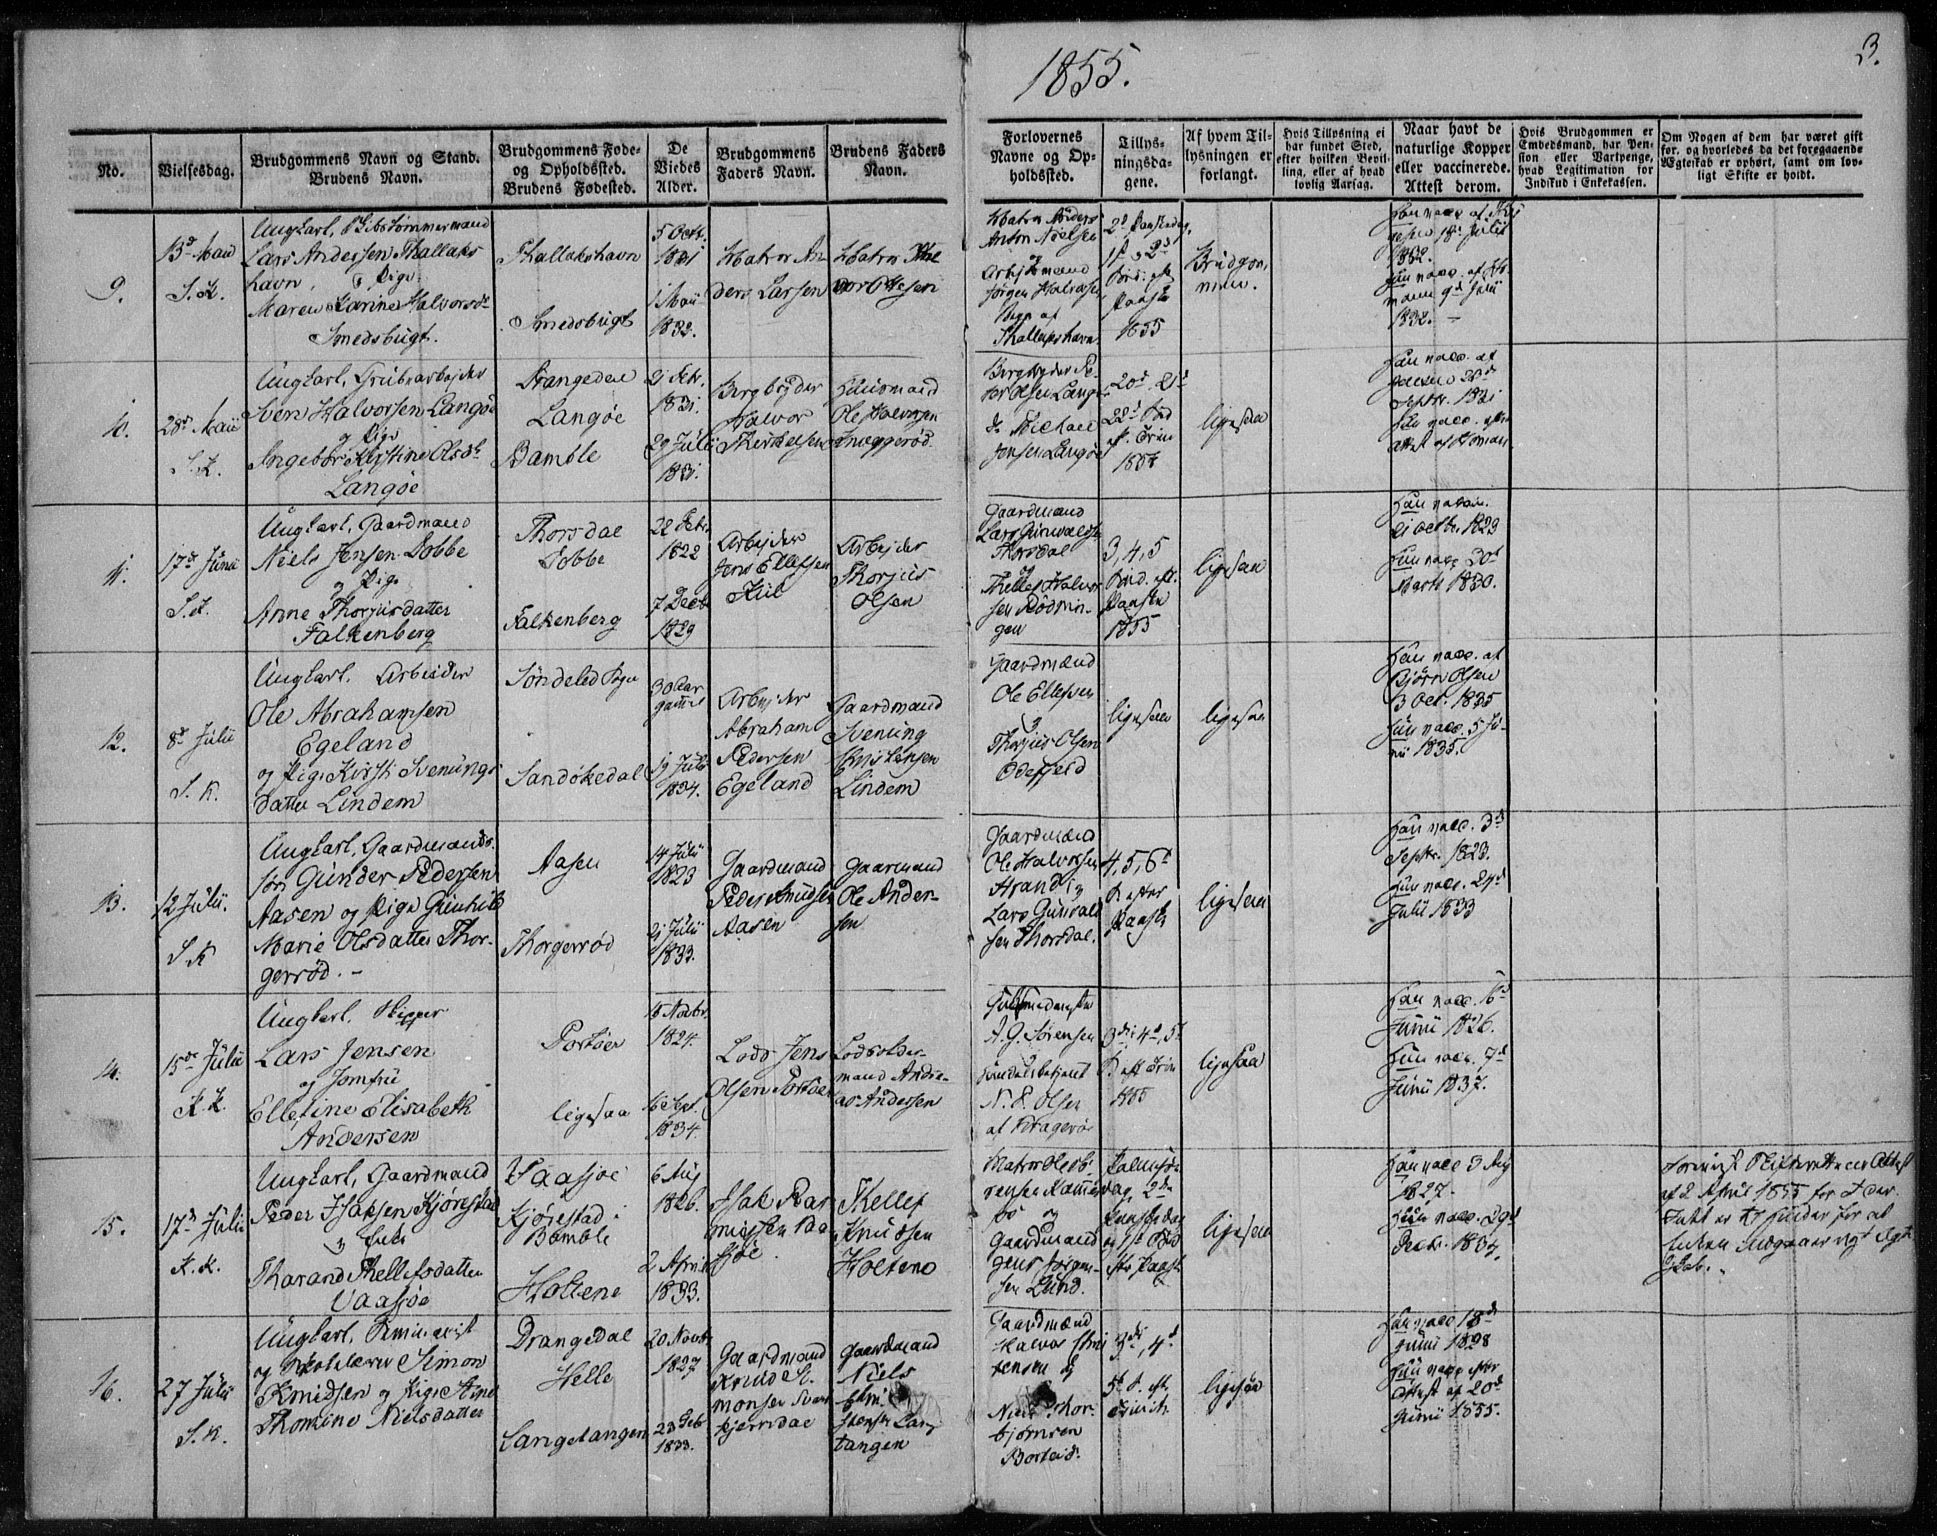 1855.
3.
No.
Vielsesdag.
Brudgommens Navn og Stand.
Brudens Navn.
Brudgommens Føde-
og Opholdssted.
Brudens Fødested.
De
Viedes
Alder.
Brudgommens
Faders Navn.
Brudens Faders
Navn.
Forlovernes
Navne og Op-
holdssted.
Tillys-
ningsda-
gene.
Af hvem Til-
lysningen er
forlangt.
Hvis Tillysning ei
har fundet Sted,
efter hvilken Bevil-
ling, eller af hvad
lovlig Aarsag.
Naar havt de
naturlige Kopper
eller vaccinerede.
Attest derom.
Hvis Brudgommen er
Embedsmand, har Pen-
sion eller Vartpenge,
hvad Legitimation for
Indskud i Enkekassen.
Om Nogen af dem har været gift
før, og hvorledes da det foregaaende
Ægteskab er ophørt, samt om lov-
ligt Skifte er holdt.
9.
13de Maii
S. K.
Ungkarl, Skibstømmermand
Lars Andersen Skallaks
havn, og Pige
Maren Karine Halvorsdr
Smedsbugt.
Skallakshavn
Smedsbugt
5 Octr.
1831
1 Maii
1832.
Matros An
ders Larsen
Matros Hal
vor Olsen
Matros Anders
Anton Nielsen
og
Jørgen Halvorsen
Skallakshavn
2d Paaskedag,
1st 2d
Paaske
1855
Brudgom,
men.
1832.
1832.
10.
28de Maii
S. K.
Ungkarl, Grubearbejder
Sven Halvorsen Langøe
og Pige
Ingebor Kirstine Olsdr
Langøe
Drangedal
Langøe
Bamble
21 Febr.
1831.
29 Julii
1831.
Bergbryder
Halvor
Therkelsen
Huusmand
Ole Halvorsen
Snæggerød
Bergbryder Pe-
der Olsen Langøe
do Michael
Jensen Langøe
20d 21d
22d Sønd
e. Trin
1854
ligesaa
Han vacc. af
28de
Septr. 1831
Hun vacc. efter
Attest af Homan
11.
17de Junii
S. K.
Ungkarl, Gaardmand
Niels Jensen Dobbe
og Pige
Anne Thorjusdatter
Falkenberg
Thorsdal
Dobbe
Falkenberg
22 Febr.
1822
7 Decbr
1829
Arbejder
Jens Ellefsen
Kiil
Arbejder
Thorjus
Olsen
Gaardmand
Lars Gunvaldsen
Thorsdal
og
Thellef Halvor
sen Rødmin-
gen
3, 4, 5
Sønd. eft.
Paaske
1855
ligesaa
Han vaccin.
21 Octbr. 1829
Hun vacc 30d
Marts 1830.
12.
8de Julii
S. K.
Ungkarl. Arbeider
Ole Abrahamsen
Egeland
og Pige Kirsti Svenungs
datter Lindem
Søndeled Sogn
Sandøkedal
30 Aar
gammel
19 Julii
1834.
Arbejder
Abraham
Pedersen
Egeland
Gaardmand
Svenung
Christensen
Lindem
Gaardmænd
Ole Ellefsen
og
Thorjus Olsen
Odefjeld
ligesaa
ligesaa
Han vacc. af
Bjørn Olsen
3 Oct. 1835
Hun vacc. 5 Ju-
nii 1835.
13.
12 Julii.
S. K
Ungkarl, Gaardmands-
søn Gunder Pedersen
Aasen og Pige Gunhild
Marie Olsdatter Thor-
gerrød. -
Aasen
Thorgerrød
14 Julii
1823
21 Julii
1833.
Gaardmand
Peder Knudsen
Aasen
Gaarmand
Ole Ander-
sen
Gaardmænd
Ole Halvorsen
Strand og
Lars Gunvald
sen Thorsdal.
4, 5, 6d
S efter
Paaske
ligesaa
Han vacc. 3d
Septr. 1823.
Hun vacc. 24d
Julii 1833
14.
15de Julii
K. K.
Ungkarl. Skipper
Lars Jensen
og Jomfru
Elletine Elisabeth
Andersen
Portøer
ligesaa
15 Novbr.
1824.
16 Sept.
1834.
Lods Jens
Olsen Portøer
Lodsolder-
mand Andre-
as Andersen
A. G. Sørensen
og
N. E. Olsen
af Kragerøe
3d, 4d, 5d
S. eft Trin
1855
ligesaa
Han vacc. 16d
Junii 1826.
Hun vacc. 7d
Junii 1837.
15.
17de Julii
K. K.
Ungkarl, Gaardmand
Peder Isaksen Kjørestad
og Enke
Tharand Thellefsdatter
Vaasjøe
Vaasjøe
Kjørestad i
Bamble
Holtene
6 Aug
1826.
2 April
1833.
Isak Ras
mussen Vaa
sjøe
Thellef
Knudsen
Holtene
og
Gaardmand
Jens Jørgen-
sen Lund.
Palmesøn-
dag, 2den
Paaskedag
og 1st Sønd
eftr Paaske
ligesaa
Han vacc 3 Aug
1827.
Hun vacc. 29d
Decbr. 1834.
af 2 April 1855 for at der
Intet er til Hinder for at
Enken indgaaer nyt Ægte-
skab.
16.
27 Julii
S. K.
Ungkarl, Seminarist
og Skolelærer Simon
Knudsen og Pige Anne
Thomine Nielsdatter
Drangedal
Helle
Langetangen
20 Novbr
1827
23 Feb
1833.
Gaardmand
Knud Si-
monsen Svart
kjerrdal
Gaardmand
Niels
Chri-
stensen Lang
tangen
Gaardmænd
Halvor Chris
tensen og
Niels Thor-
bjørnsen
Borteid.
3de, 4d
5te S. eft.
Trinit.
ligesaa
Han vacc 18de
Junii 1828
Hun vacc efter
Attest af 20de
Junii 1855.